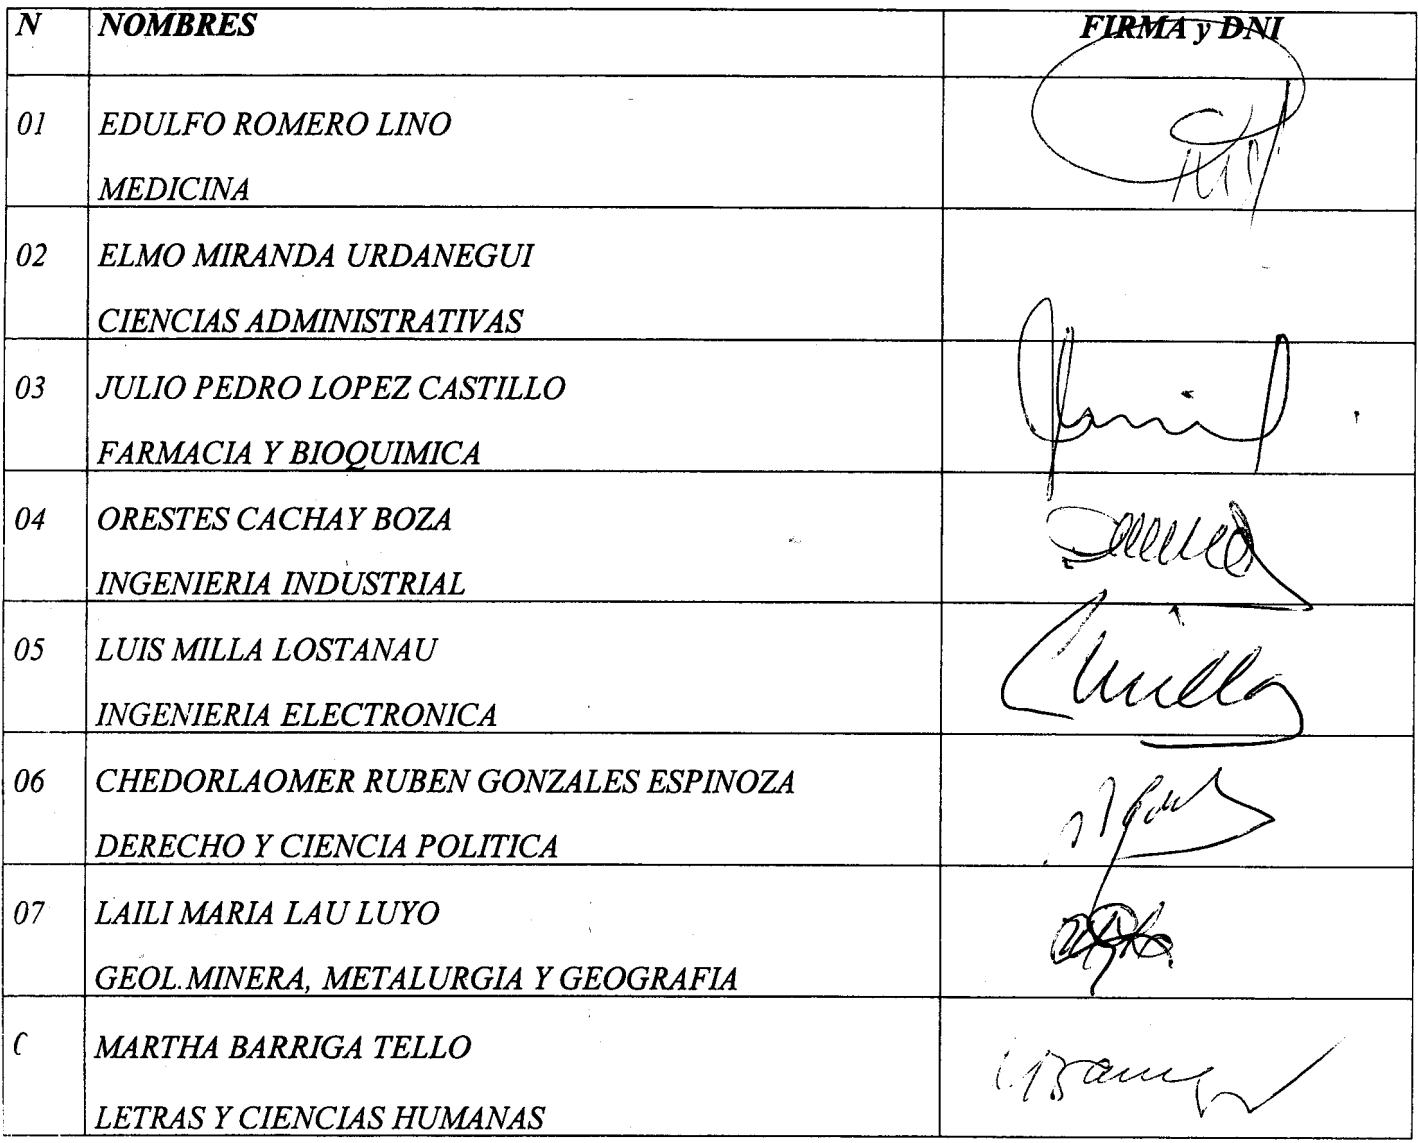 N NOMBRES FIRMA y DNI
01 EDULFO ROMERO LINO
MEDICINA
02 ELMO MIRANDA URDANEGUI
CIENCIAS ADMINISTRATIVAS
03 JULIO PEDRO LOPEZ CASTILLO
FARMACIA Y BIOQUIMICA
04 ORESTES CACHAY BOZA
INGENIERIA INDUSTRIAL
05 LUIS MILLA LOSTANAU
INGENIERIA ELECTRONICA
06 CHEDORLAOMER RUBEN GONZALES ESPINOZA
DERECHO Y CIENCIA POLITICA
07 LAILI MARIA LAU LUYO
GEOL.MINERA, METALURGIA Y GEOGRAFIA
MARTHA BARRIGA TELLO
LETRAS Y CIENCIAS HUMANAS